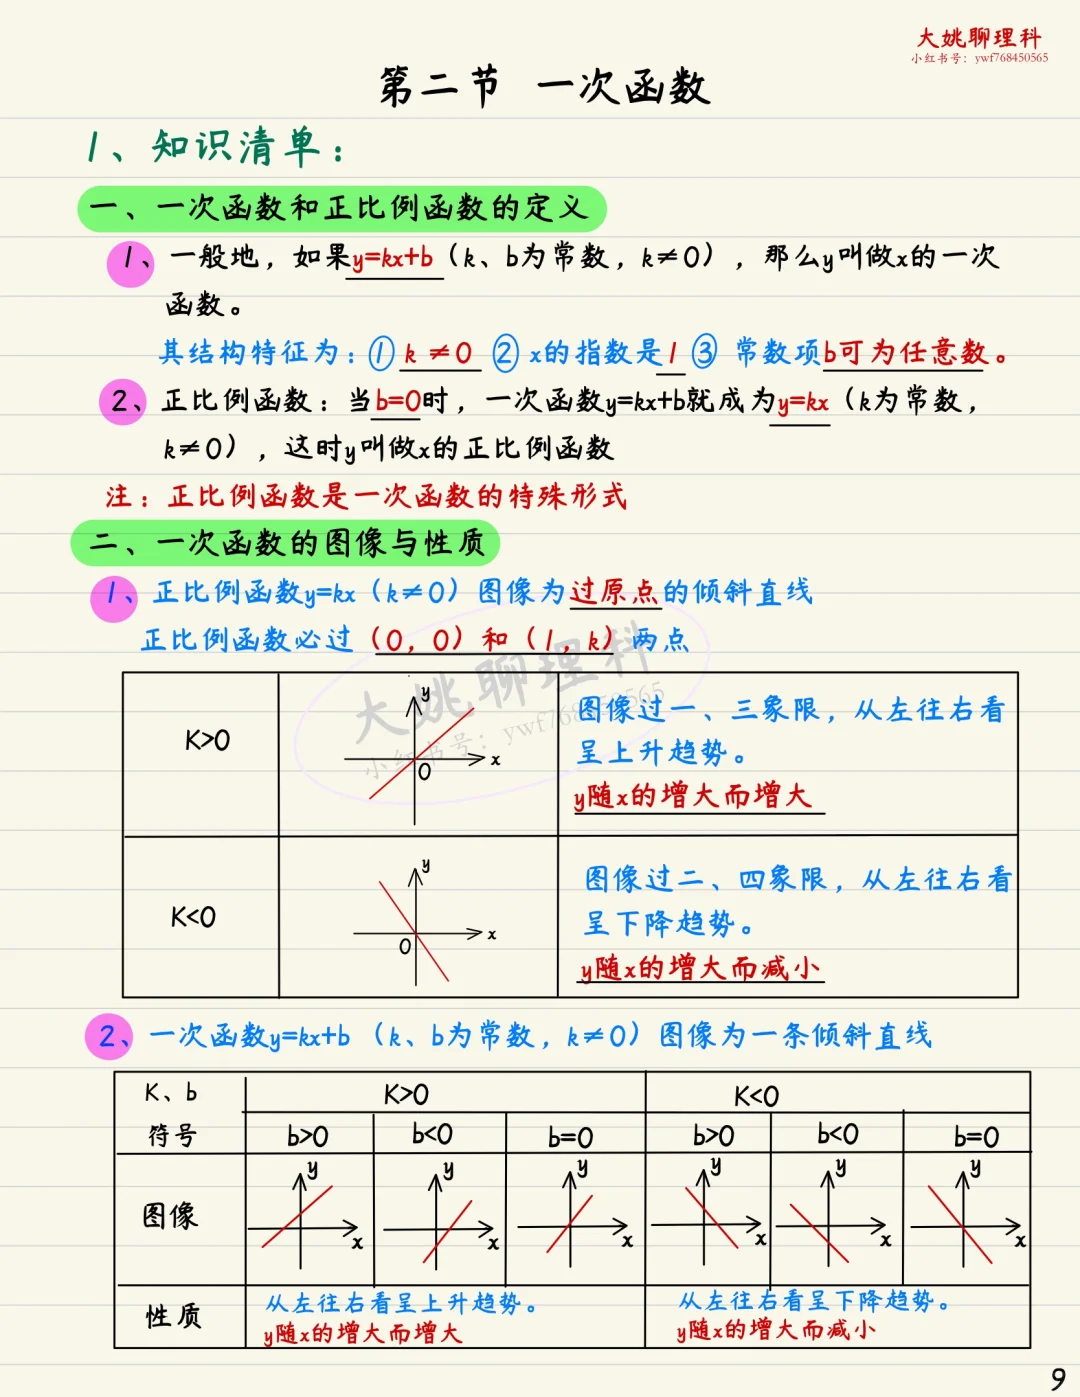 大姚聊理科
小红书号：ywf768450565
第二节 一次函数
1、知识清单：
一、一次函数和正比例函数的定义
1、一般地，如果y=kx+b（k、b为常数，k≠0），那么y叫做x的一次
函数。
其结构特征为：① k ≠0 ② x的指数是1 ③ 常数项b可为任意数。
2、正比例函数：当b=0时，一次函数y=kx+b就成为y=kx（k为常数，
k≠0），这时y叫做x的正比例函数
注：正比例函数是一次函数的特殊形式
二、一次函数的图像与性质
1、正比例函数y=kx（k≠0）图像为过原点的倾斜直线
正比例函数必过（0，0）和（1，k）两点
大姚聊理科
小红书号：ywf768450565
K>0
y
x
0
图像过一、三象限，从左往右看
呈上升趋势。
y随x的增大而增大
K<0
y
x
0
图像过二、四象限，从左往右看
呈下降趋势。
y随x的增大而减小
2、一次函数y=kx+b（k、b为常数，k≠0）图像为一条倾斜直线
K、b
符号
K>0
K<0
b>0
b<0
b=0
b>0
b<0
b=0
图像
y
x
y
x
y
x
y
x
y
x
y
x
性质
从左往右看呈上升趋势。
y随x的增大而增大
从左往右看呈下降趋势。
y随x的增大而减小
9